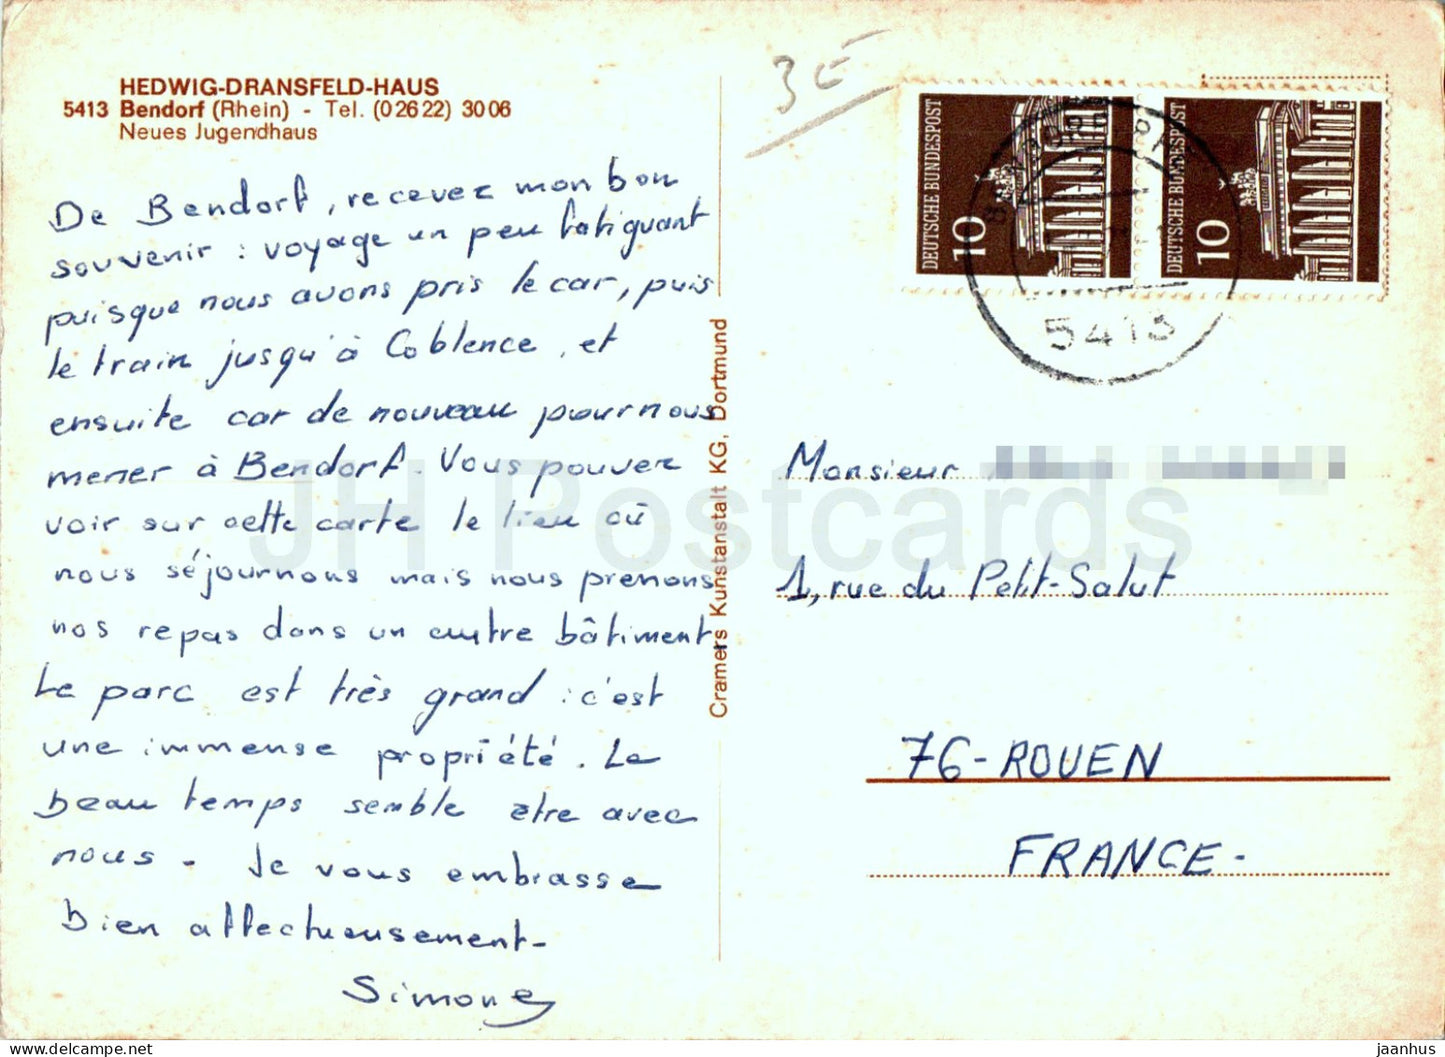 HEDWIG-DRANSFELD-HAUS
5413 Bendorf (Rhein) - Tel. (02622) 3006
Neues Jugendhaus
De Bendorf, recevez mon bon
souvenir : voyage un peu fatiguant
puisque nous avons pris le car, puis
le train jusqu'à Coblence, et
ensuite car de nouveau pour nous
mener à Bendorf. Vous pouvez
voir sur cette carte le lieu où
nous séjournons mais nous prenons
nos repas dans un autre bâtiment
Le parc est très grand : c'est
une immense propriété. Le
beau temps semble etre avec
nous. Je vous embrasse
bien affectueusement-
Simone
Cramers Kunstanstalt KG, Dortmund
3 €
DEUTSCHE BUNDESPOST
10
DEUTSCHE BUNDESPOST
10
5413
Monsieur
1, rue du Petit-Salut
76-ROUEN
FRANCE-
JH Postcards
delcampe.net
jaanhus